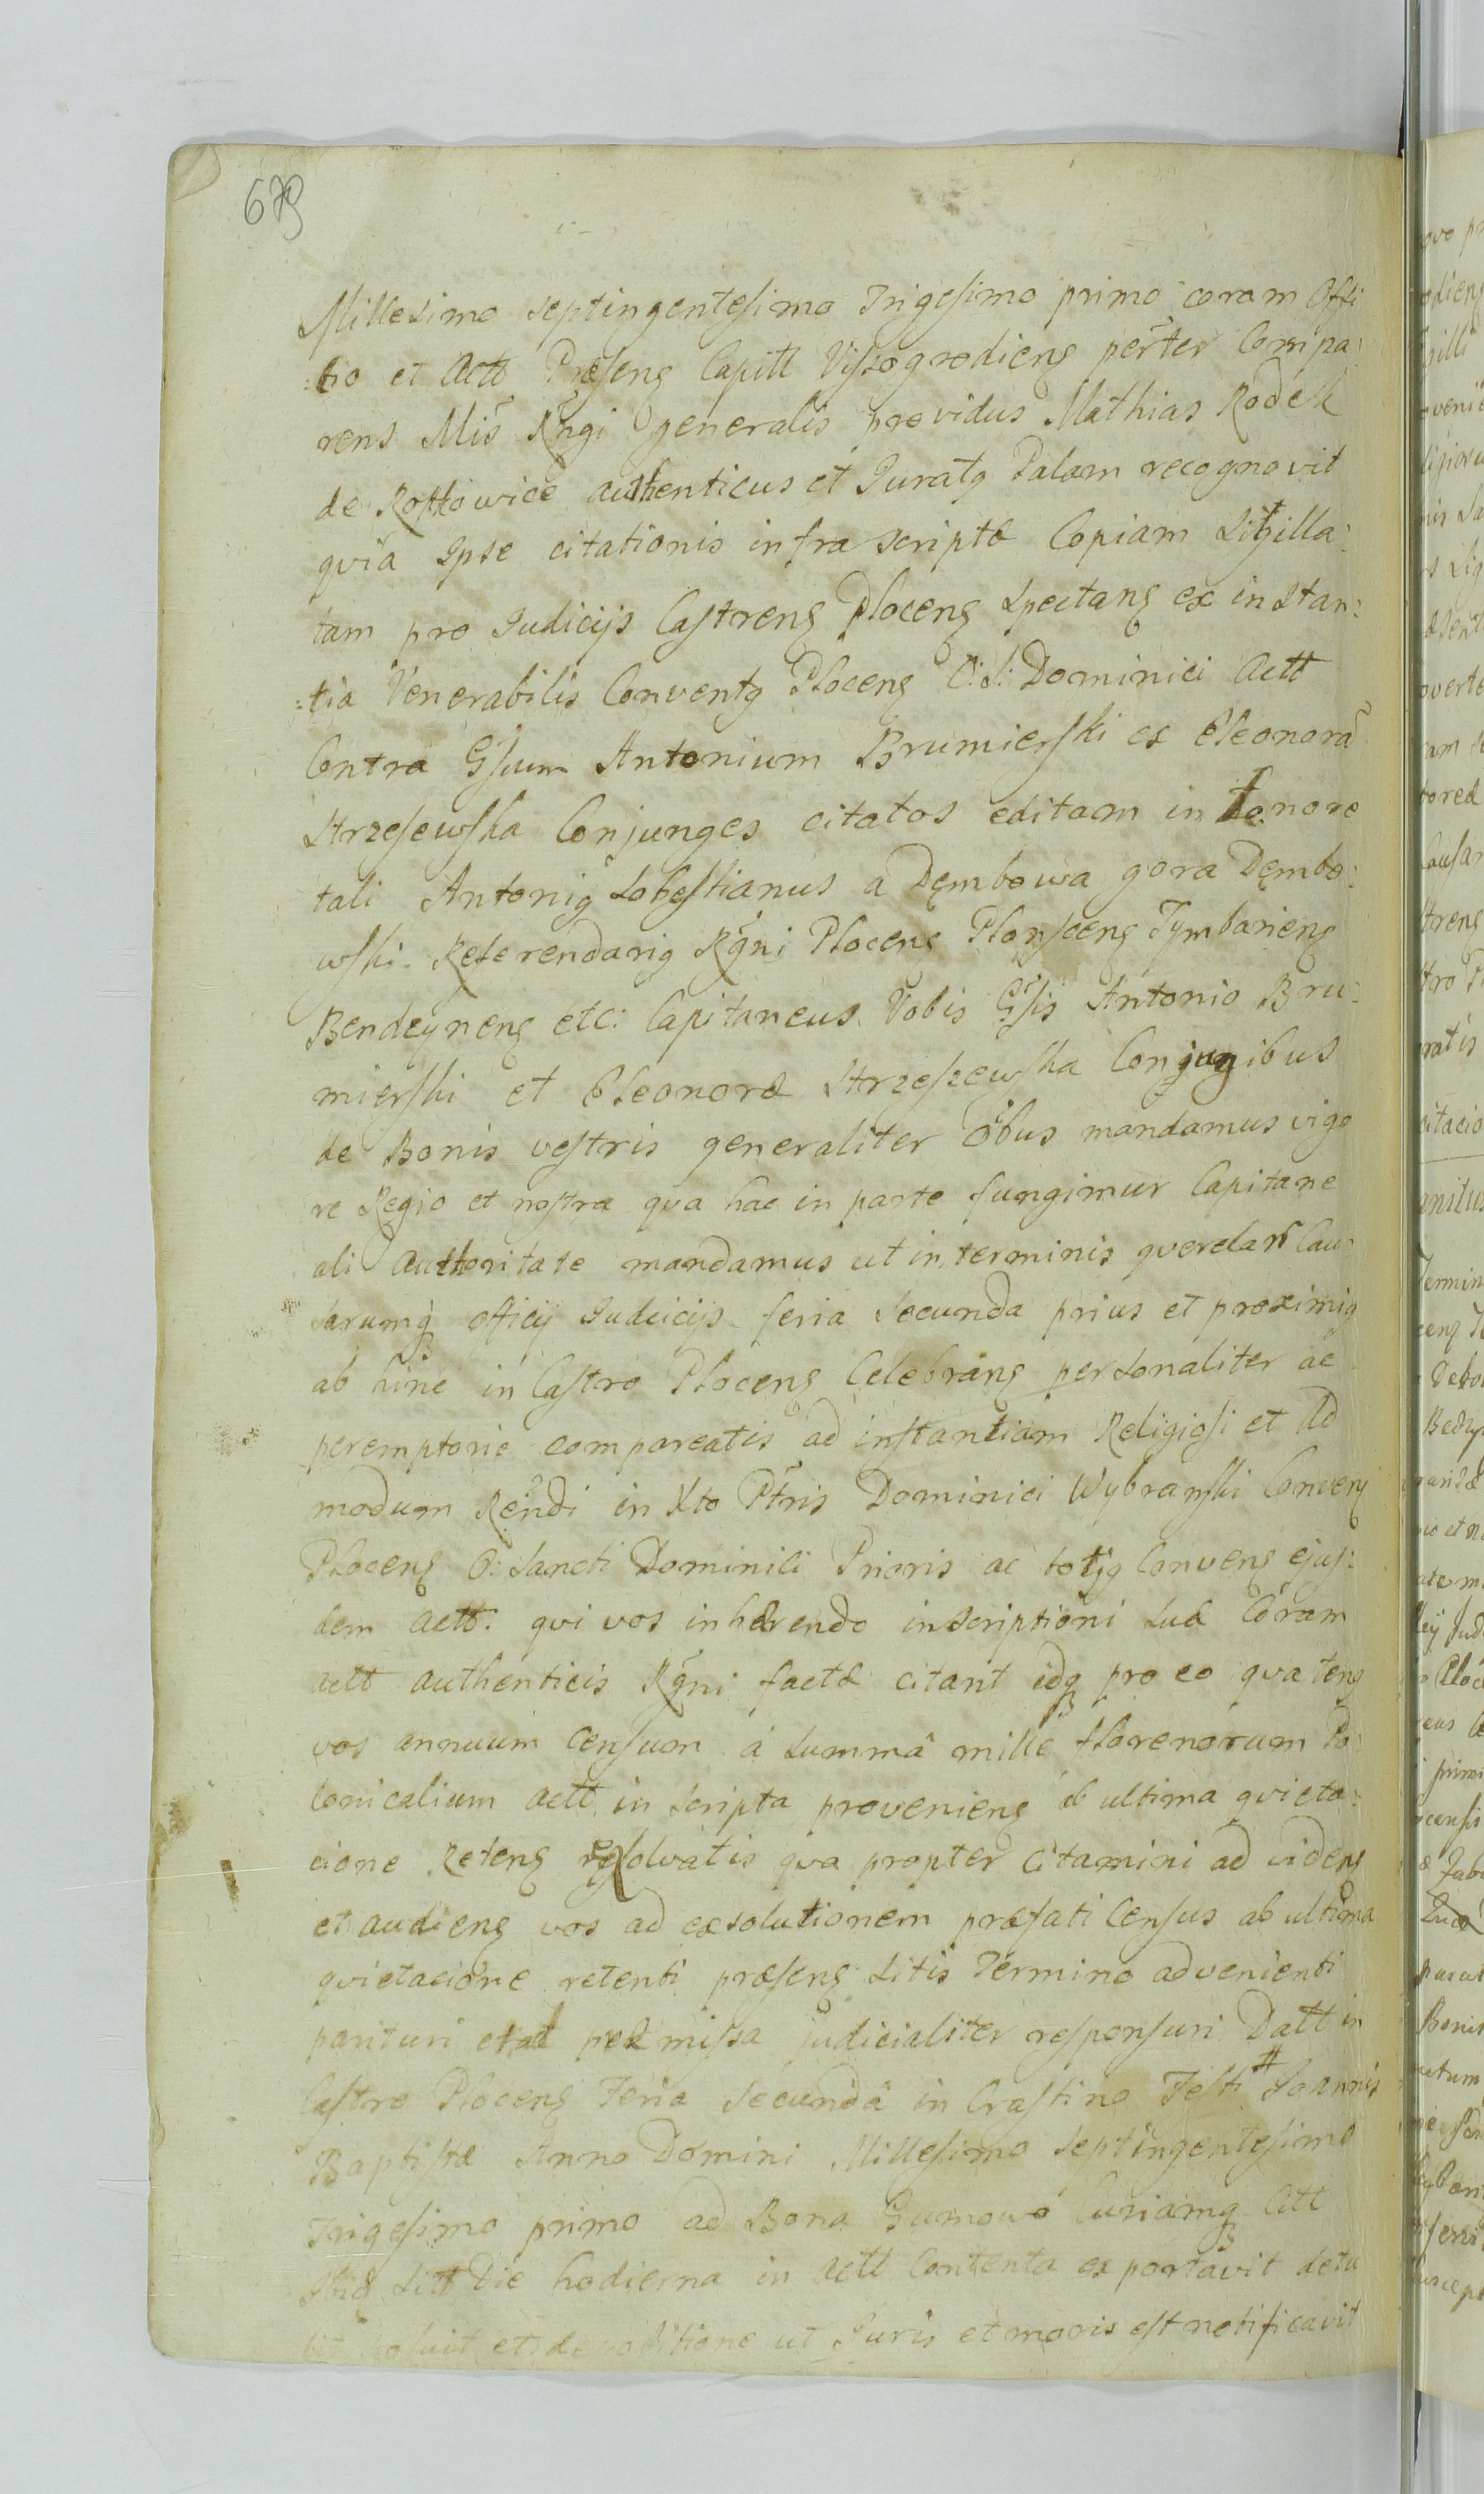 679
Millesimo septingentesimo Trigesimo primo coram Offi
:tio et Actt Præseng Capitt Viszogrodieng perter Compa:
rens Mis Rngi generalis providus Mathias Rodek
de Rostkowice authenticus et Juratg Palam recognovit
qvia Ipse citationis infra scriptæ Copiam Sigilla:
tam pro Judicijs Castreng Ploceng Spectang ex instan:
:tia Venerabilis Conventg Ploceng O: S: Dominici Actt
Contra Gssum Antonium Brumierski et Eleonora
Strzesewska Conjunges citatos editam in tenore
tali Antonig Sobestianus a Dęmbowa gora Dembo:
wski Referendarig Rgni Ploceng Plonsceng Tymbarieng
Bendeyneng etc: Capitaneus Vobis Gssis Antonio Bru:
mierski et Eleonoræ Strzeszewska Conjugibus
de Bonis vestris generaliter obus mandamus vigo
re Regio et nostra qva hac in parte fungimur Capitane
ali Authoritate mandamus ut in terminis qverelar Cau:
sarumq officij Judicijs feria Secunda prius et proximig
ab hinc in Castro Ploceng Celebrang personaliter ac
peremptorie compareatis ad instantiam Religiosi et Ad
modum Rendi in Xto Ptris Dominici Wybranski Conveng
Ploceng O: Sancti Dominici Prioris ac totig Conveng ejus:
dem actt: qvi vos inhærendo inscriptioni suæ coram
actt authenticis Rgni factæ citant idq pro eo qvateng
vos annuum Censum á Summâ mille florenorum Po:
lonicalium actt in scripta provenieng ab ultima qvieta:
cione Reteng exsolvatis qva propter citamini ad videng
et audieng vos ad exsolutionem præfati Census ab ultima
qvietacione retenti præseng Litis Termino advenienti
parituri et ad præmissa judicialiter responsuri Datt in
Castro Ploceng Feria Secundâ in Crastino Festi # Joannis
Baptistæ Anno Domini Millesimo Septingentesimo
Trigesimo primo ad Bona Gumowo Curiamq Citt
Ibiq Sitt Die hodierna in actt Contenta exportavit detu
lit posuit et de positione ut Juris et moris est notificavit